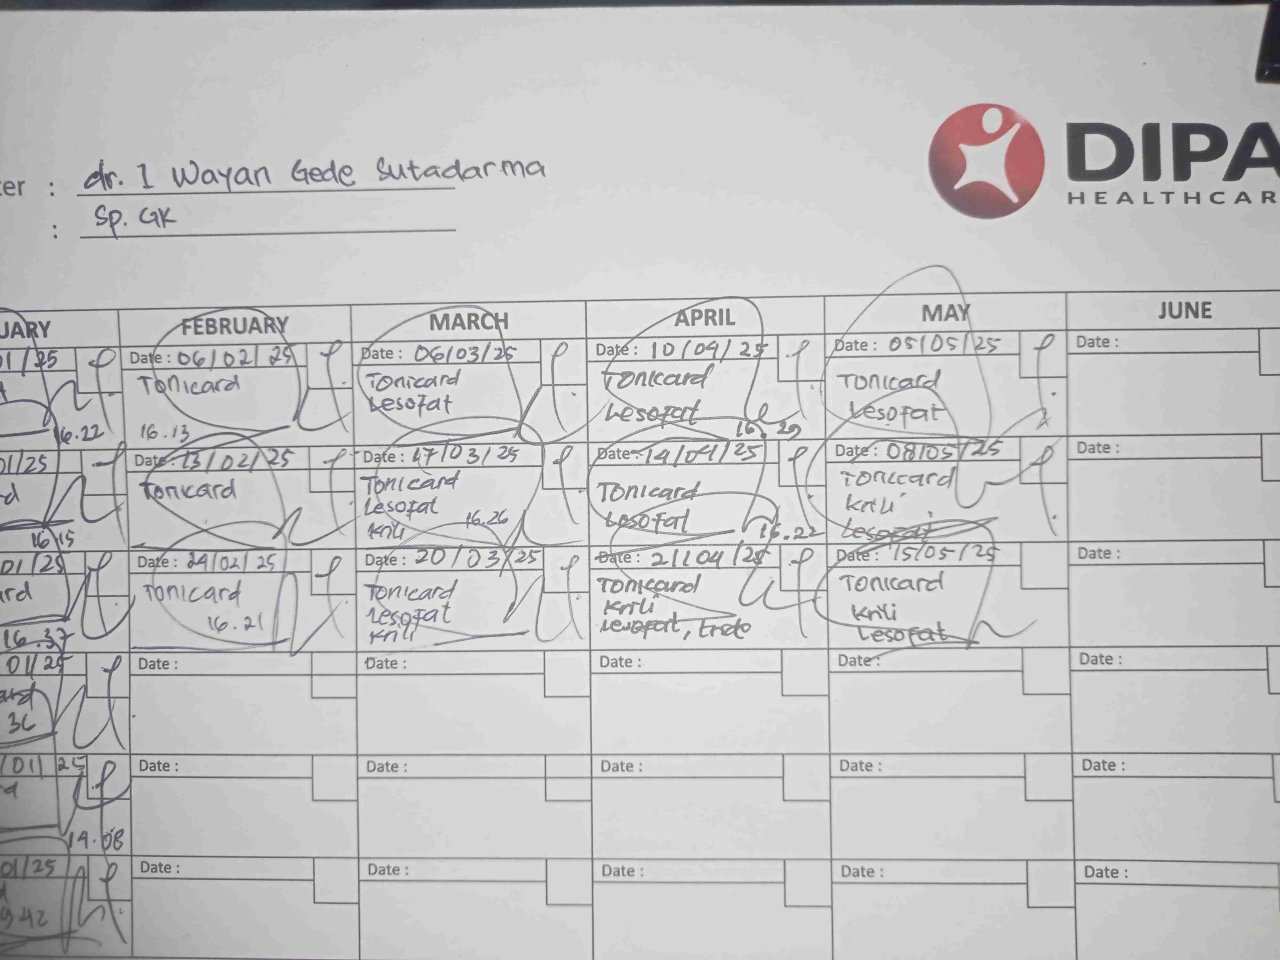 dr. I Wayan Gede Sutadarma
Sp. GK
DIPA
HEALTHCAR
UARY FEBRUARY MARCH APRIL MAY JUNE
01/25 Date : 06/02/25 Date : 06/03/25 Date : 10/04/25 Date : 05/05/25 Date :
Tonicard Tonicard Tonicard Tonicard
Lesofat Lesofat Lesofat
16.22 16.13 16.29
01/25 Date : 13/02/25 Date : 17/03/25 Date : 14/04/25 Date : 08/05/25 Date :
rd Tonicard Tonicard Tonicard Tonicard
Lesofat Lesofat Krili
16.15 Krili 16.26 16.22 Lesofat
01/25 Date : 24/02/25 Date : 20/03/25 Date : 21/04/25 Date : 15/05/25 Date :
ard Tonicard Tonicard Tonicard Tonicard
16.21 Lesofat Krili Krili
16.37 Krili Lesofat, Lesofat
01/25 Date : Date : Date : Date : Date :
ard
36
/01/25 Date : Date : Date : Date : Date :
14.08
01/25 Date : Date : Date : Date : Date :